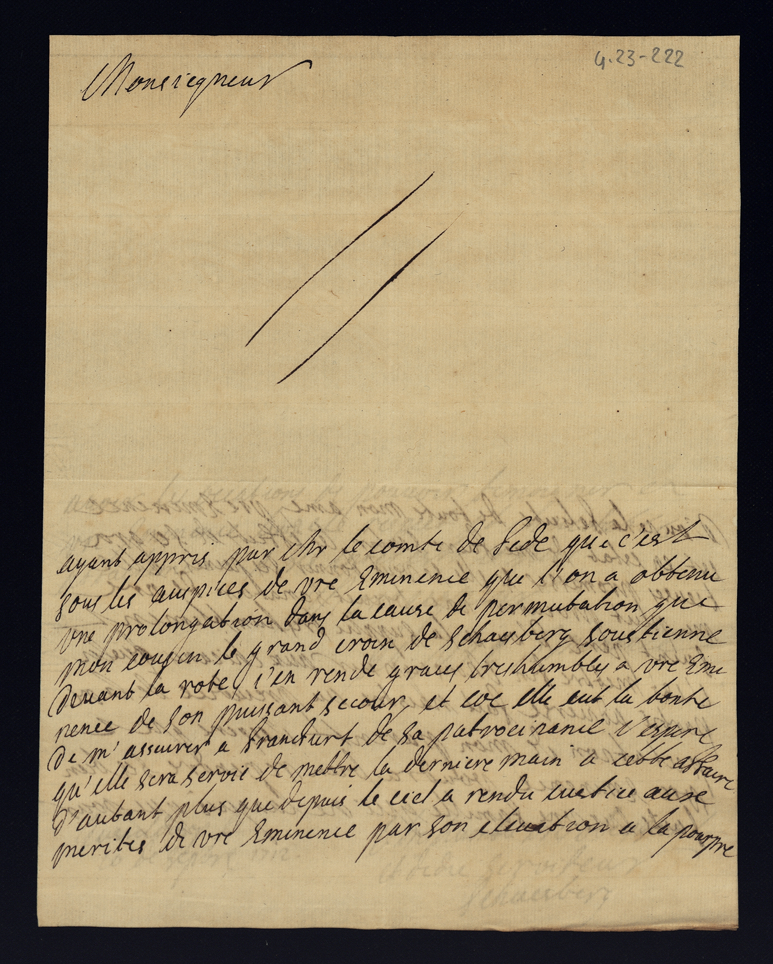 4.23-222
Monsieigneur
ayant appris par Mr le comte de Sede que c'est
sous les auspices de vre Eminence que l'on a obtenu
vne prolongation dans la cause de permutation que
mon cousin le grand croix de Schaesberg soustienne
devant la rote, j'en rende graces treshumbles a vre Emi
nence de son puissant secour, et coe elle eut la bonte
de m'assurer a francfurt de sa patrocinance j'espere
qu'elle sera servie de mettre la derniere main a cette affaire
d'autant plus que depuis le ciel a rendu iustice aux
merites de vre Eminence par son elevation a la pourpre